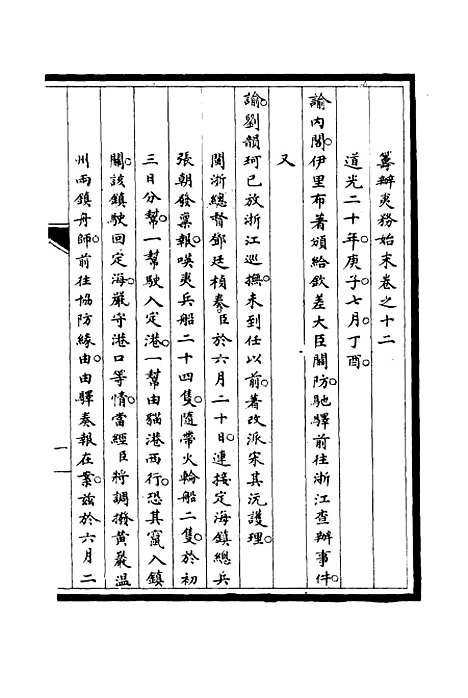 籌辦夷務始末卷之十二
道光二十年庚子七月丁酉。
諭內閣。伊里布著頒給欽差大臣關防。馳驛前往浙江查辦事件。
又
諭。劉韻珂已放浙江巡撫。未到任以前。著改派宋其沅護理。
閩浙總督鄧廷楨奏。臣於六月二十日。連接定海鎮總兵
張朝發稟報。𠸄夷兵船二十四隻。隨帶火輪船二隻。於初
三日分幫。一幫駛入定港。一幫由貓港西行。恐其竄入鎮
關。該鎮駛回定海。嚴守港口等情。當經臣將調撥黃巖溫
州兩鎮舟師。前往協防緣由。由驛奏報在案。茲於六月二
一